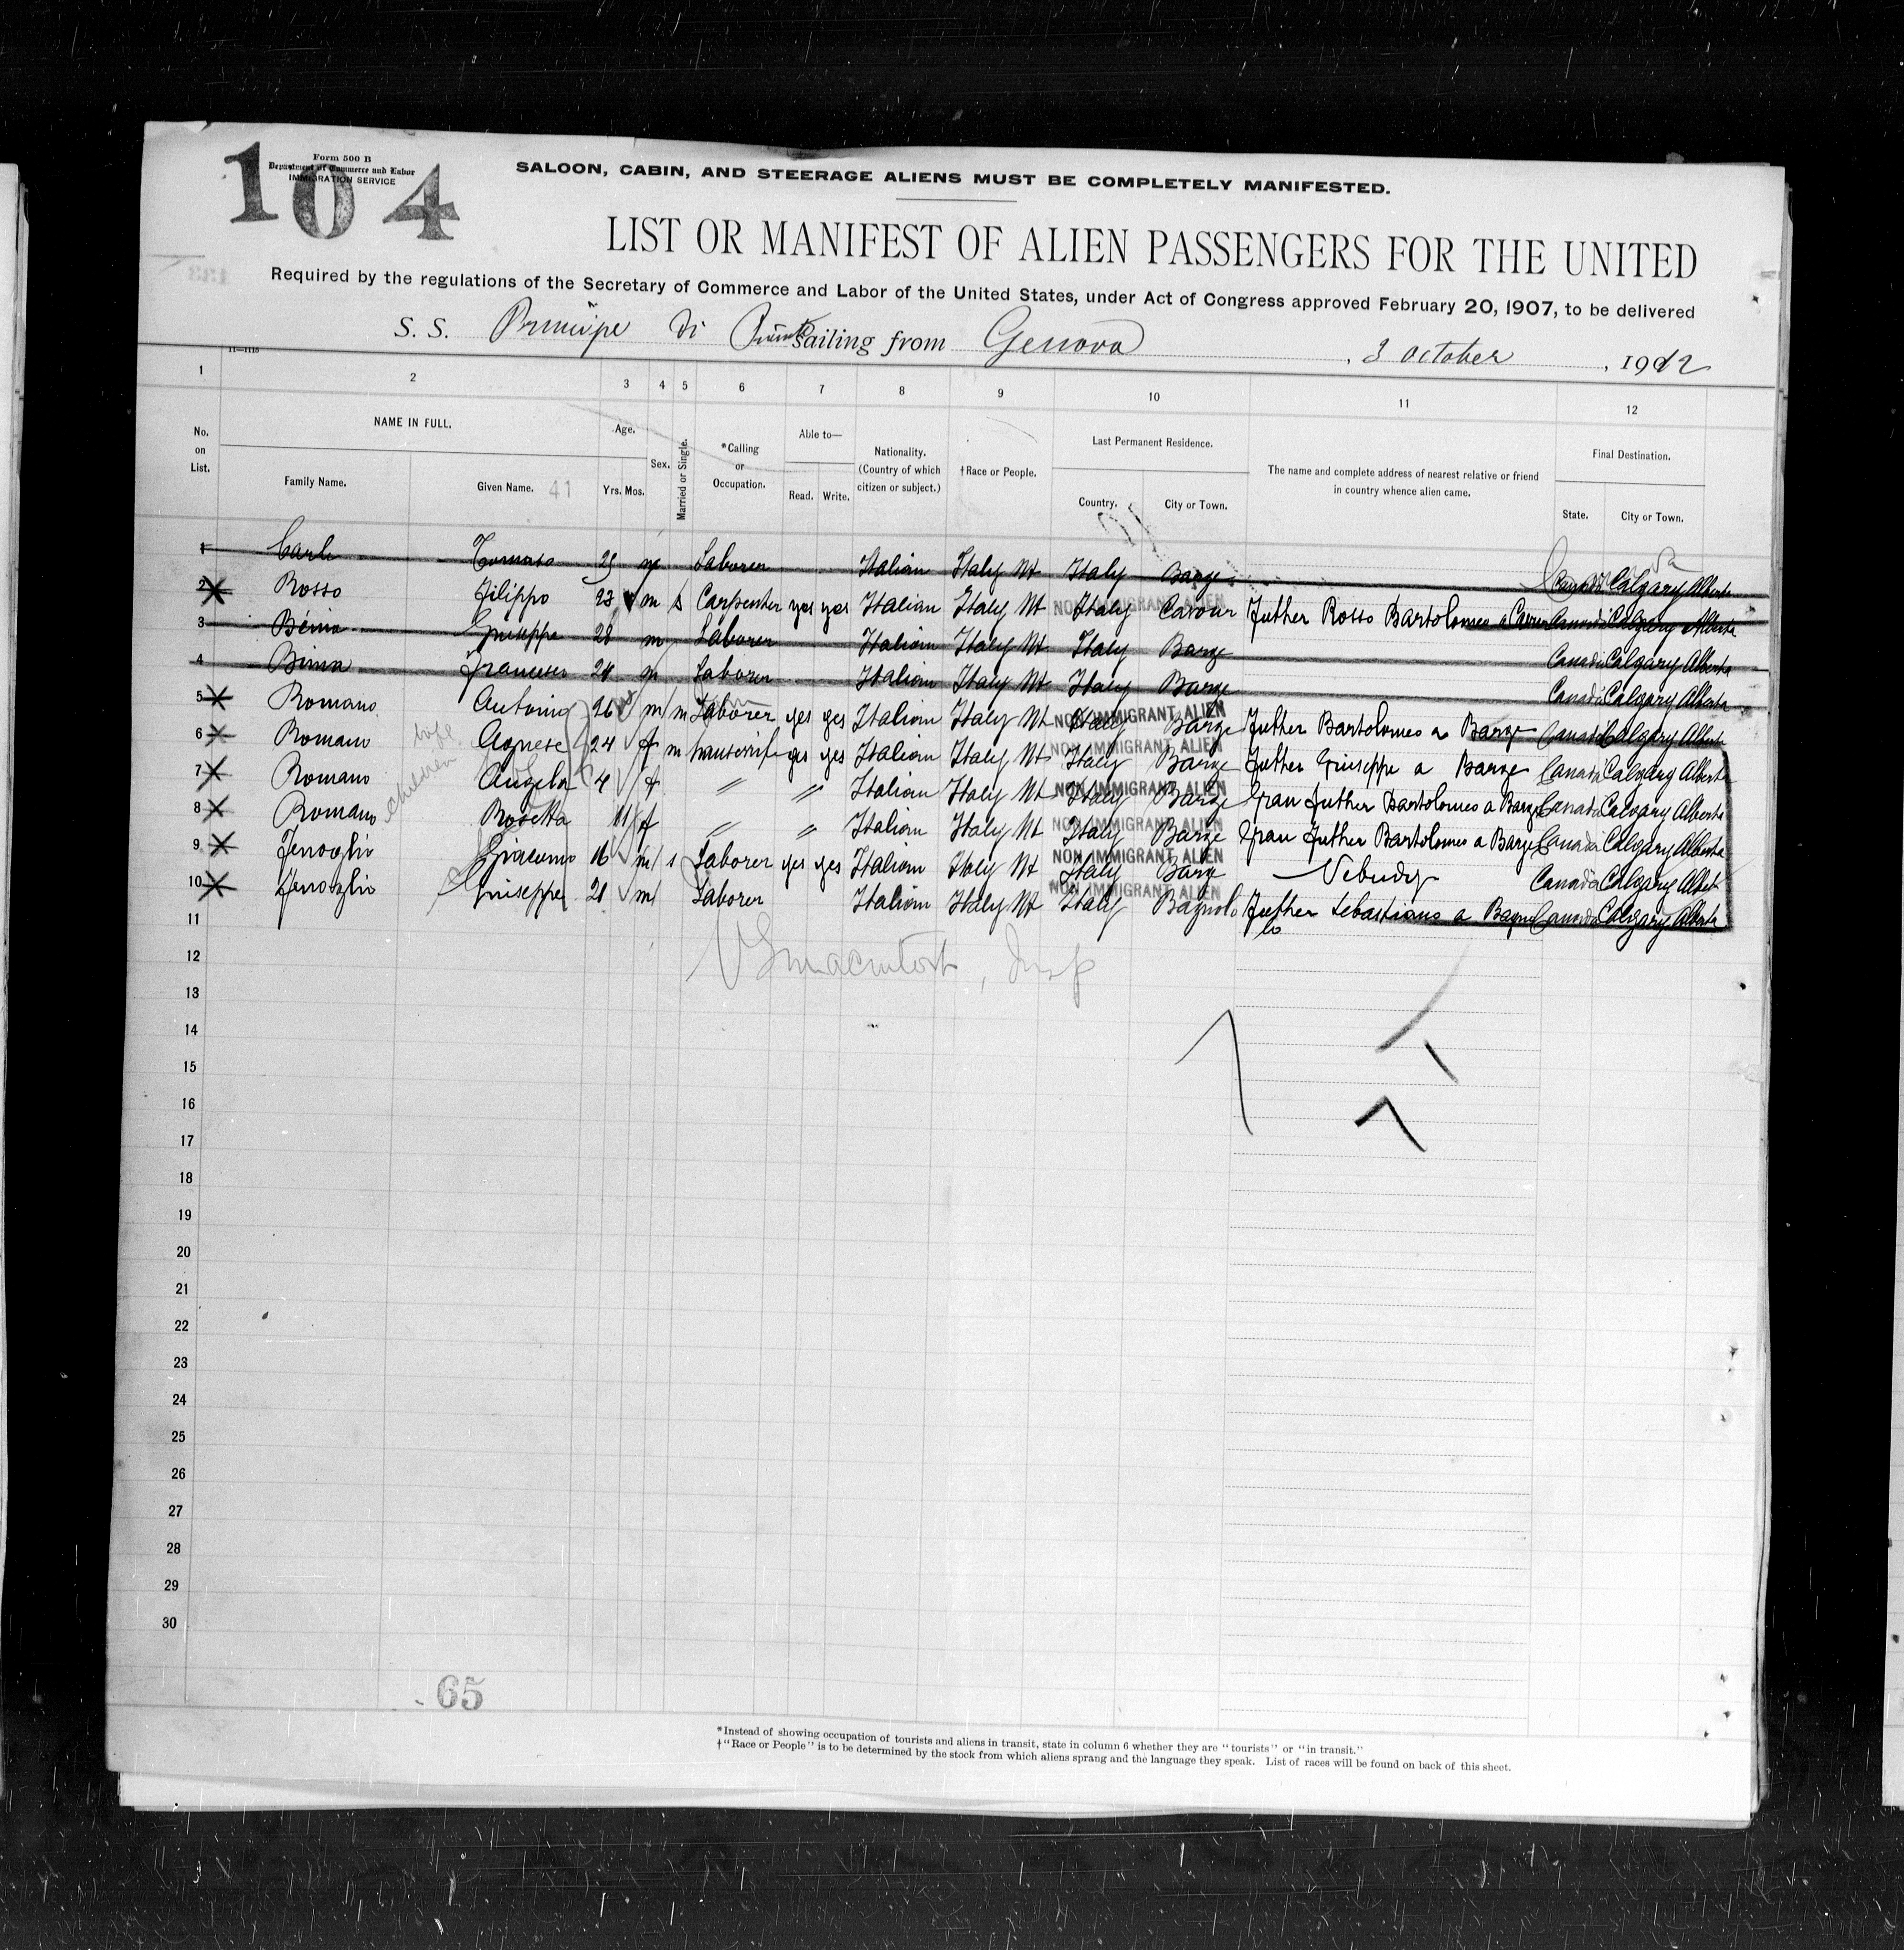 104
Form 500 B
Department of Commerce and Labor
IMMIGRATION SERVICE
SALOON, CABIN, AND STEERAGE ALIENS MUST BE COMPLETELY MANIFESTED.
LIST OR MANIFEST OF ALIEN PASSENGERS FOR THE UNITED
Required by the regulations of the Secretary of Commerce and Labor of the United States, under Act of Congress approved February 20, 1907, to be delivered
S. S. Principe di sailing from Genova, 3 October, 1912
1 2 3 4 5 6 7 8 9 10 11 12
No. on List.
NAME IN FULL.
Family Name.
Given Name. 41
Age.
Yrs. Mos.
Sex.
Married or Single.
*Calling or Occupation.
Able to—
Read. Write.
Nationality. (Country of which citizen or subject.)
†Race or People.
Last Permanent Residence.
Country. City or Town.
The name and complete address of nearest relative or friend in country whence alien came.
Final Destination.
State. City or Town.
1 Tomaso 29 m Laborer Italian Italy Nt Italy Barge Canada Calgary Alberta
2 Rosso Filippo 23 m s Carpenter yes yes Italian Italy Nt Italy Cavour Father Rosso Bartolomeo a Canada Calgary Alberta
NON IMMIGRANT ALIEN
3 Giuseppe 28 m Laborer Italian Italy Nt Italy Barge Canada Calgary Alberta
4 Bima Francesco 24 m Laborer Italian Italy Nt Italy Barge Canada Calgary Alberta
5 Romano Antonio 26 m m Laborer yes yes Italian Italy Nt Italy Barge Father Bartolomeo a Barge Canada Calgary Alberta
NON IMMIGRANT ALIEN
6 Romano wife Agnese 24 f m yes yes Italian Italy Nt Italy Barge Father Giuseppe a Barge Canada Calgary Alberta
NON IMMIGRANT ALIEN
7 Romano children Angela 4 f " " Italian Italy Nt Italy Barge Gran Father Bartolomeo a Barge Canada Calgary Alberta
NON IMMIGRANT ALIEN
8 Romano Rosetta 11 f " " Italian Italy Nt Italy Barge Gran Father Bartolomeo a Barge Canada Calgary Alberta
NON IMMIGRANT ALIEN
9 Fenoglio Giacomo 16 m s Laborer yes yes Italian Italy Nt Italy Barge Canada Calgary Alberta
NON IMMIGRANT ALIEN
10 Fenoglio Giuseppe 21 m Laborer Italian Italy Nt Italy Bagnolo Father Sebastiano a Canada Calgary Alberta
NON IMMIGRANT ALIEN
11
12
13
14
15
16
17
18
19
20
21
22
23
24
25
26
27
28
29
30
65
*Instead of showing occupation of tourists and aliens in transit, state in column 6 whether they are "tourists" or "in transit."
†"Race or People" is to be determined by the stock from which aliens sprang and the language they speak. List of races will be found on back of this sheet.